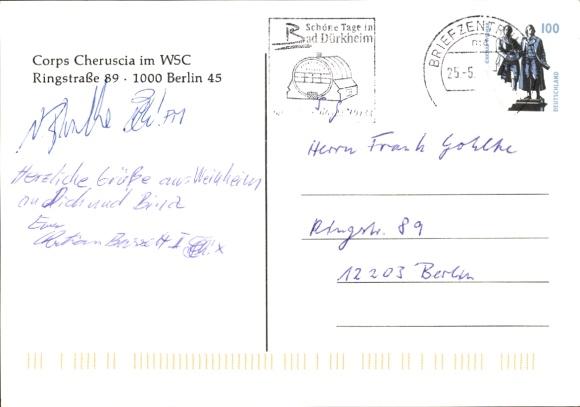 Corps Cheruscia im WSC
Ringstraße 89 · 1000 Berlin 45
FM
Herzliche Grüße aus Weinheim
an Dich und
Euer
Schöne Tage in
Bad Dürkheim
BRIEFZENTR
25.-5.
100
DEUTSCHLAND
Herrn Frank Gohlke
Ringstr. 89
12203 Berlin